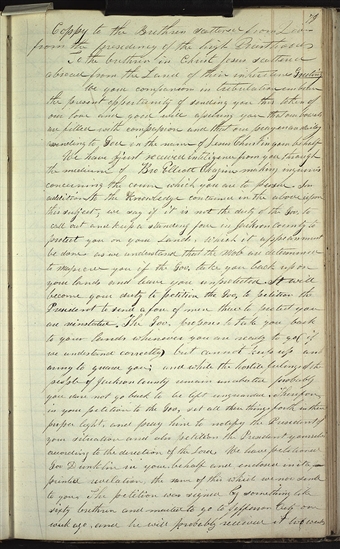 79
Coppy to the Brethren scattered from Zion
from the Presidency of the high Priesthood
To the brethren in Christ Jesus scattered
abroad from the Land of their inheritance Greeting
We your companions in tribulation embrace
the present oppertunity of sending you this token of
our love and good will assuring you that our bowels
are filled with compassion and that our prayers are daily
ascending to God in the name of Jesus Christ in your behalf
We have just received intelligence from you through
the medium of Bro Elliott making inquiries
concerning the course which you are to persue. In
addition to the knowledge contained in the above upon
this subject, we say if it is not the duty of the Gov to
call out and keep a standing force in Jackson County to
protect you on your Lands, which it appears must
be done as we understand that the Mob are determined
to massacre you if the Gov. take you back upon
your lands and leave you unprotected it will
become your duty to petition the Gov. to petition the
President to send a force of men there to protect you
are reinstated. The Gov. proposes to take you back
to your Lands whenever you are ready to go (if
we understand correctly) but cannot keep up an
army to guard you; and while the hostile feelings of the
people of Jackson County remain unabated probably
you dare not go back to be left unguarded. Therefore
in your petition to the Gov, set all these things forth in their
proper light, and pray him to notify the President of
your situation and also petition the President yourselves
according to the direction of the Lord. We have petitioned
Gov Dunklin in your behalf and enclosed in it a
printed revelation the same of this which we now send
to you. The petition was signed by something like
sixty brethren and mailed to go to Jefferson City one
week ago, and he will probably receive it two weeks